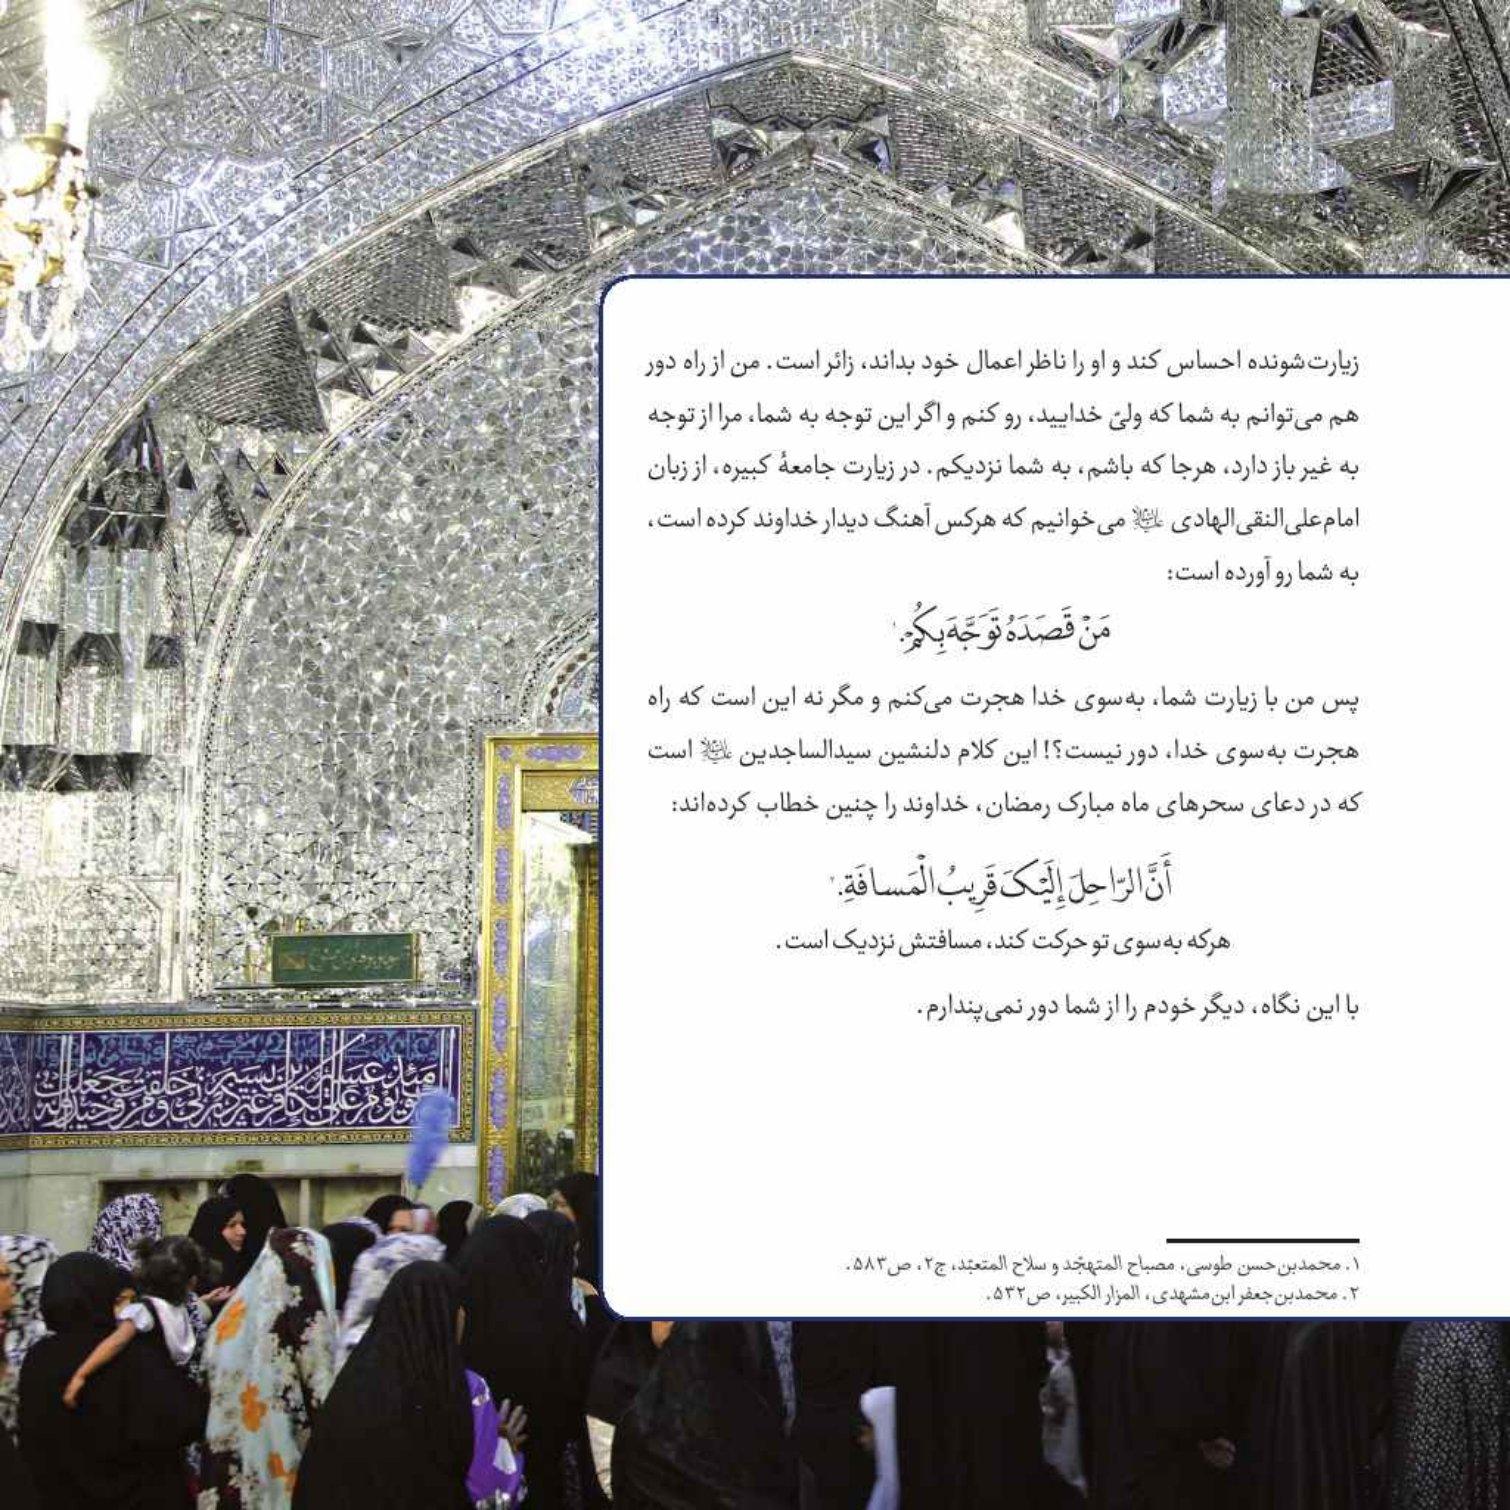 زیارت‌شونده احساس کند و او را ناظر اعمال خود بداند، زائر است. من از راه دور
هم می‌توانم به شما که ولیّ خدایید، رو کنم و اگر این توجه به شما، مرا از توجه
به غیر باز دارد، هرجا که باشم، به شما نزدیکم. در زیارت جامعهٔ کبیره، از زبان
امام‌علی‌النقی‌الهادی علیه‌السلام می‌خوانیم که هرکس آهنگ دیدار خداوند کرده است،
به شما رو آورده است:
مَنْ قَصَدَهُ تَوَجَّهَ بِكُمْ.۱
پس من با زیارت شما، به‌سوی خدا هجرت می‌کنم و مگر نه این است که راه
هجرت به‌سوی خدا، دور نیست؟! این کلام دلنشین سیدالساجدین علیه‌السلام است
که در دعای سحرهای ماه مبارک رمضان، خداوند را چنین خطاب کرده‌اند:
أَنَّ الرّاحِلَ إِلَیْکَ قَرِیبُ الْمَسافَةِ.۲
هرکه به‌سوی تو حرکت کند، مسافتش نزدیک است.
با این نگاه، دیگر خودم را از شما دور نمی‌پندارم.
۱. محمدبن‌حسن طوسی، مصباح المتهجّد و سلاح المتعبّد، ج۲، ص۵۸۳.
۲. محمدبن‌جعفر ابن‌مشهدی، المزار الکبیر، ص۵۳۲.